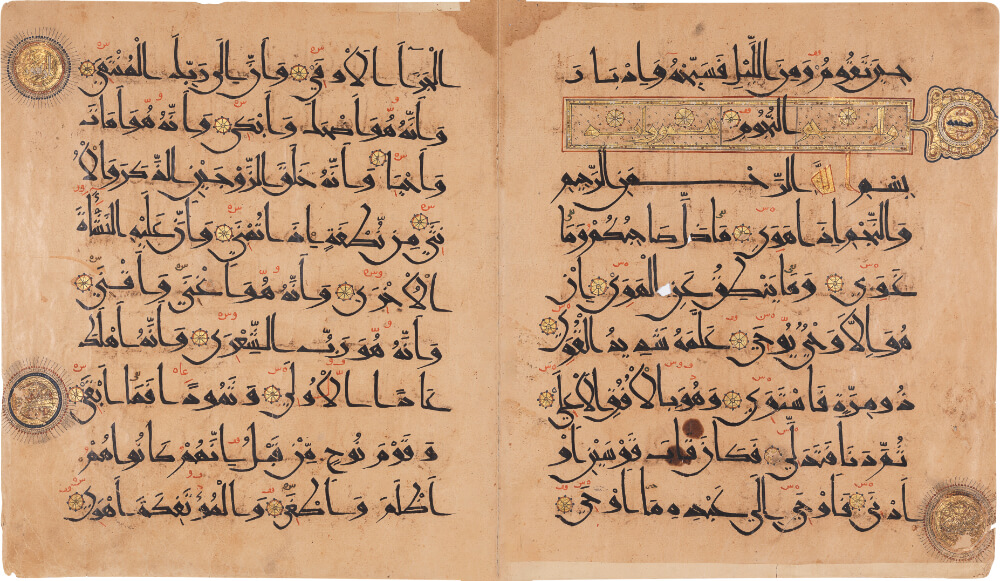 حين تقوم ومن الليل فسبحه وادبار
النجوم
بسم الله الرحمن الرحيم
والنجم اذا هوى ما ضل صاحبكم وما
غوى وما ينطق عن الهوى ان
هو الا وحي يوحى علمه شديد القوى
ذو مرة فاستوى وهو بالافق الاعلى
ثم دنا فتدلى فكان قاب قوسين او
ادنى فاوحى الى عبده ما اوحى
الجزآء الاوفى وان الى ربك المنتهى
وانه هو اضحك وابكى وانه هو امات
واحيا وانه خلق الزوجين الذكر والا
نثى من نطفة اذا تمنى وان عليه النشاة
الاخرى وانه هو اغنى واقنى
وانه هو رب الشعرى وانه اهلك
عادا الاولى وثمودا فما ابقى
وقوم نوح من قبل انهم كانوا هم
اظلم واطغى والمؤتفكة اهوى